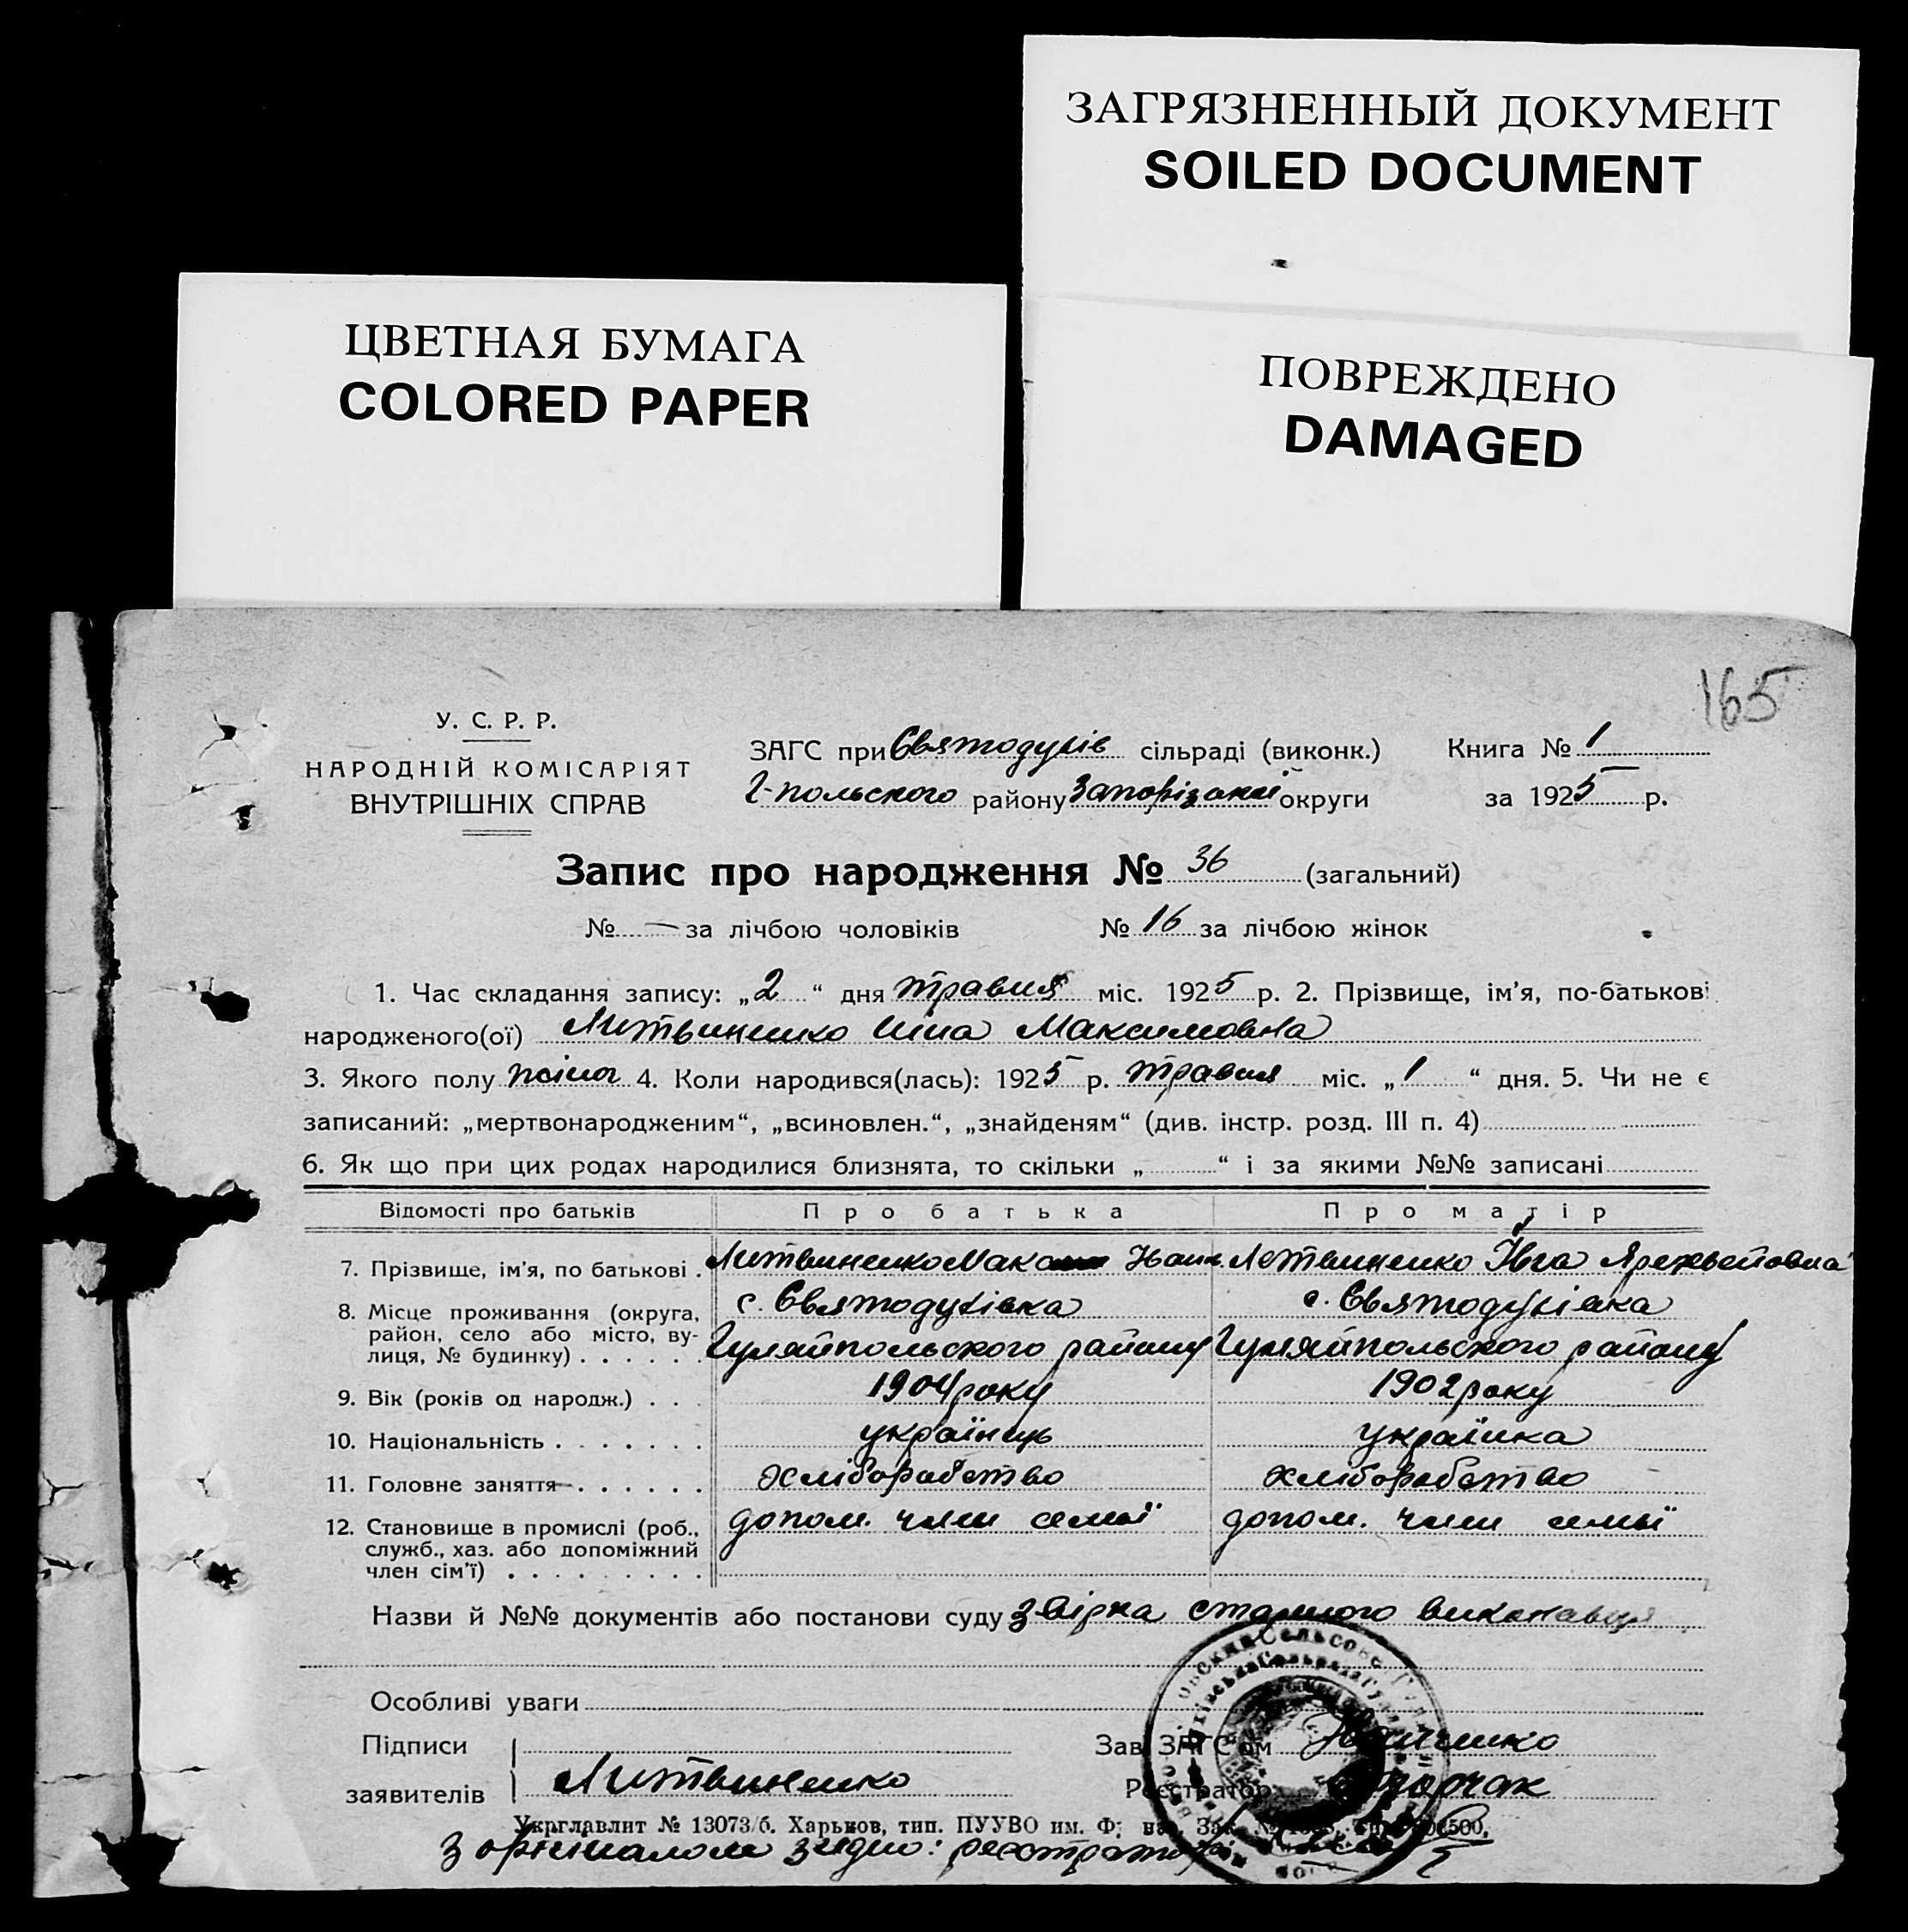 ЗАГРЯЗНЕННЫЙ ДОКУМЕНТ
SOILED DOCUMENT
ЦВЕТНАЯ БУМАГА
COLORED PAPER
ПОВРЕЖДЕНО
DAMAGED
165
У. С. Р. Р.
НАРОДНІЙ КОМІСАРІЯТ
ВНУТРІШНІХ СПРАВ
ЗАГС при Святодухів сільраді (виконк.) Книга № 1
Г-польского району Запорізакої округи за 1925 р.
Запис про народження № 36 (загальний)
№ — за лічбою чоловіків № 16 за лічбою жінок
1. Час складання запису: „2“ дня травня міс. 1925 р. 2. Прізвище, ім'я, по-батькові
народженого(ої) Литвиненко Ніна Максимовна
3. Якого полу жіноч 4. Коли народився(лась): 1925 р. травня міс. „1“ дня. 5. Чи не є
записаний: „мертвонародженим“, „всиновлен.“, „знайденям“ (див. інстр. розд. III п. 4)
6. Як що при цих родах народилися близнята, то скільки „ “ і за якими №№ записані
Відомості про батьків Про батька Про матір
7. Прізвище, ім'я, по батькові . Литвиненко Іван. Литвиненко Ївга
8. Місце проживання (округа, район, село або місто, вулиця, № будинку) . . . . . . с. Святодухівка Гуляйпольского району с. Святодухівка Гуляйпольского району
9. Вік (років од народж.) . . . 1904 року 1902 року
10. Національність . . . . . . . українець українка
11. Головне заняття . . . . . . хліборобство хліборобство
12. Становище в промислі (роб., служб., хаз. або допоміжний член сім'ї) . . . . . . . . . допом. член семьї допом. член семьї
Назви й №№ документів або постанови суду звірка старшого виконавця
Особливі уваги
Підписи
заявителів Литвиненко
Зав. ЗАГС'ом
Реєстратор
Укрглавлит № 13073/б. Харьков, тип. ПУУВО им. Ф.
З оригіналом згідно: реєстратор